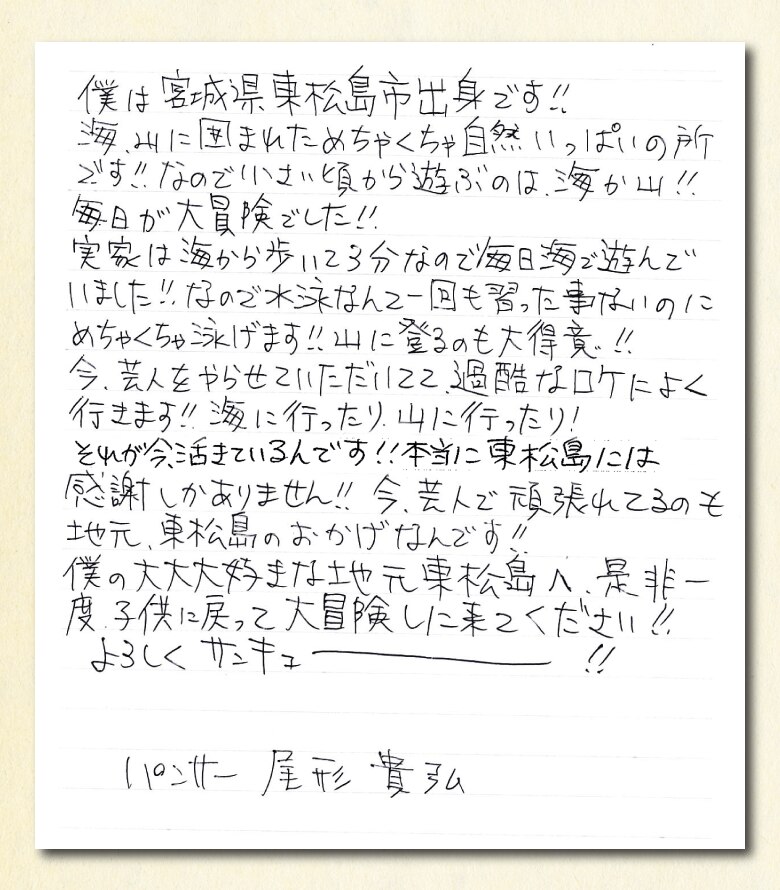 僕は宮城県東松島市出身です!!
海、山に囲まれためちゃくちゃ自然いっぱいの所
です!!なので小さい頃から遊ぶのは、海か山!!
毎日が大冒険でした!!
実家は海から歩いて3分なので毎日海で遊んで
いました!!なので水泳なんて一回も習った事ないのに
めちゃくちゃ泳げます!!山に登るのも大得意!!
今、芸人をやらせていただいてて、過酷なロケによく
行きます!!海に行ったり、山に行ったり!
それが今、活きているんです!!本当に東松島には
感謝しかありません!!今、芸人で頑張れてるのも
地元、東松島のおかげなんです!!
僕の大大大好きな地元東松島へ、是非一
度、子供に戻って大冒険しに来てください!!
よろしくサンキュー!!
パンサー 尾形貴弘